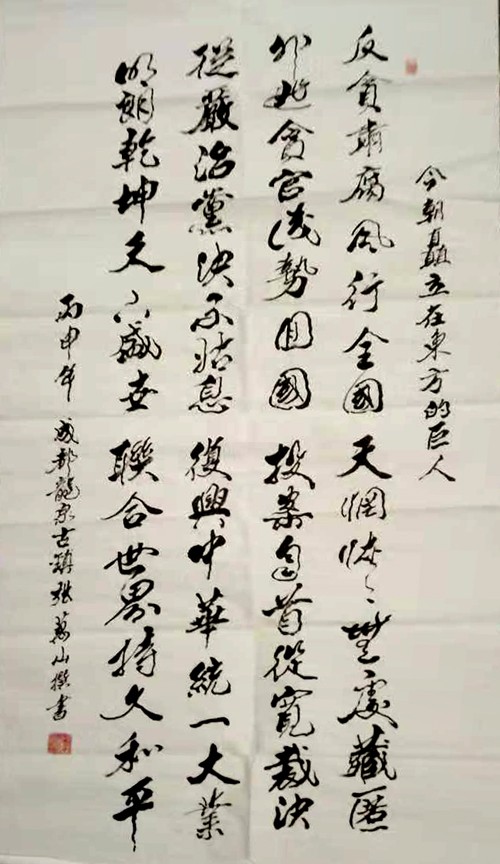 今朝矗立在東方的巨人
反貪肅腐風行全國天惘恢〻無處藏匿
外逃貪官勢回國投案自首從寬裁決
從嚴治黨決不姑息復興中華統一大業
明朗乾坤天下盛世聯合世界持久和平
丙申年成都龍泉古鎮張萬山撰書